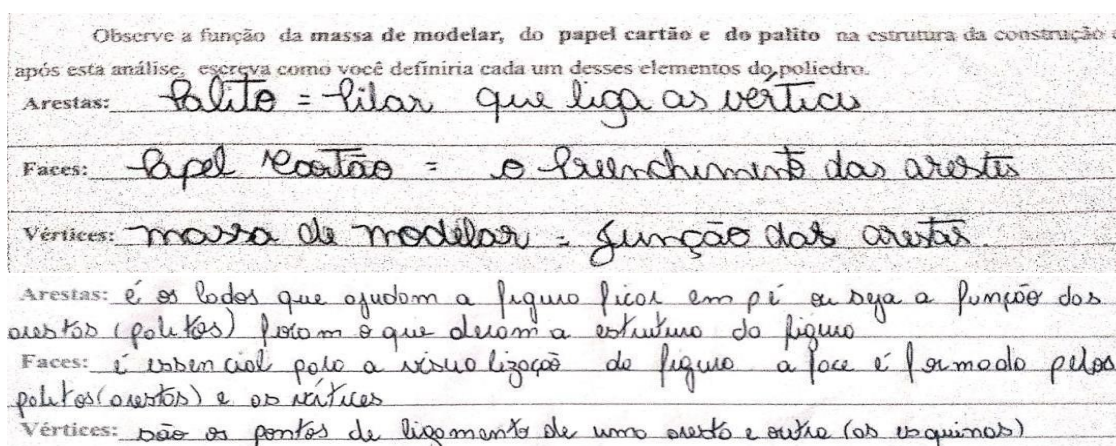 Observe a função da massa de modelar, do papel cartão e do palito na estrutura da construção e
após esta análise, escreva como você definiria cada um desses elementos do poliedro.
Arestas: Palito = Pilar que liga as vertices
Faces: Papel Cartão = o Preenchimento das arestas
Vértices: massa de modelar = junção das arestas.
Arestas: é os lados que ajudam a figura ficar em pé ou seja a função das
arestas (palitos) foram o que deram a estrutura da figura
Faces: é essencial para a visualização da figura a face é formada pelos
palitos (arestas) e os vértices
Vértices: são os pontos de ligamento de uma aresta e outra (as esquinas)